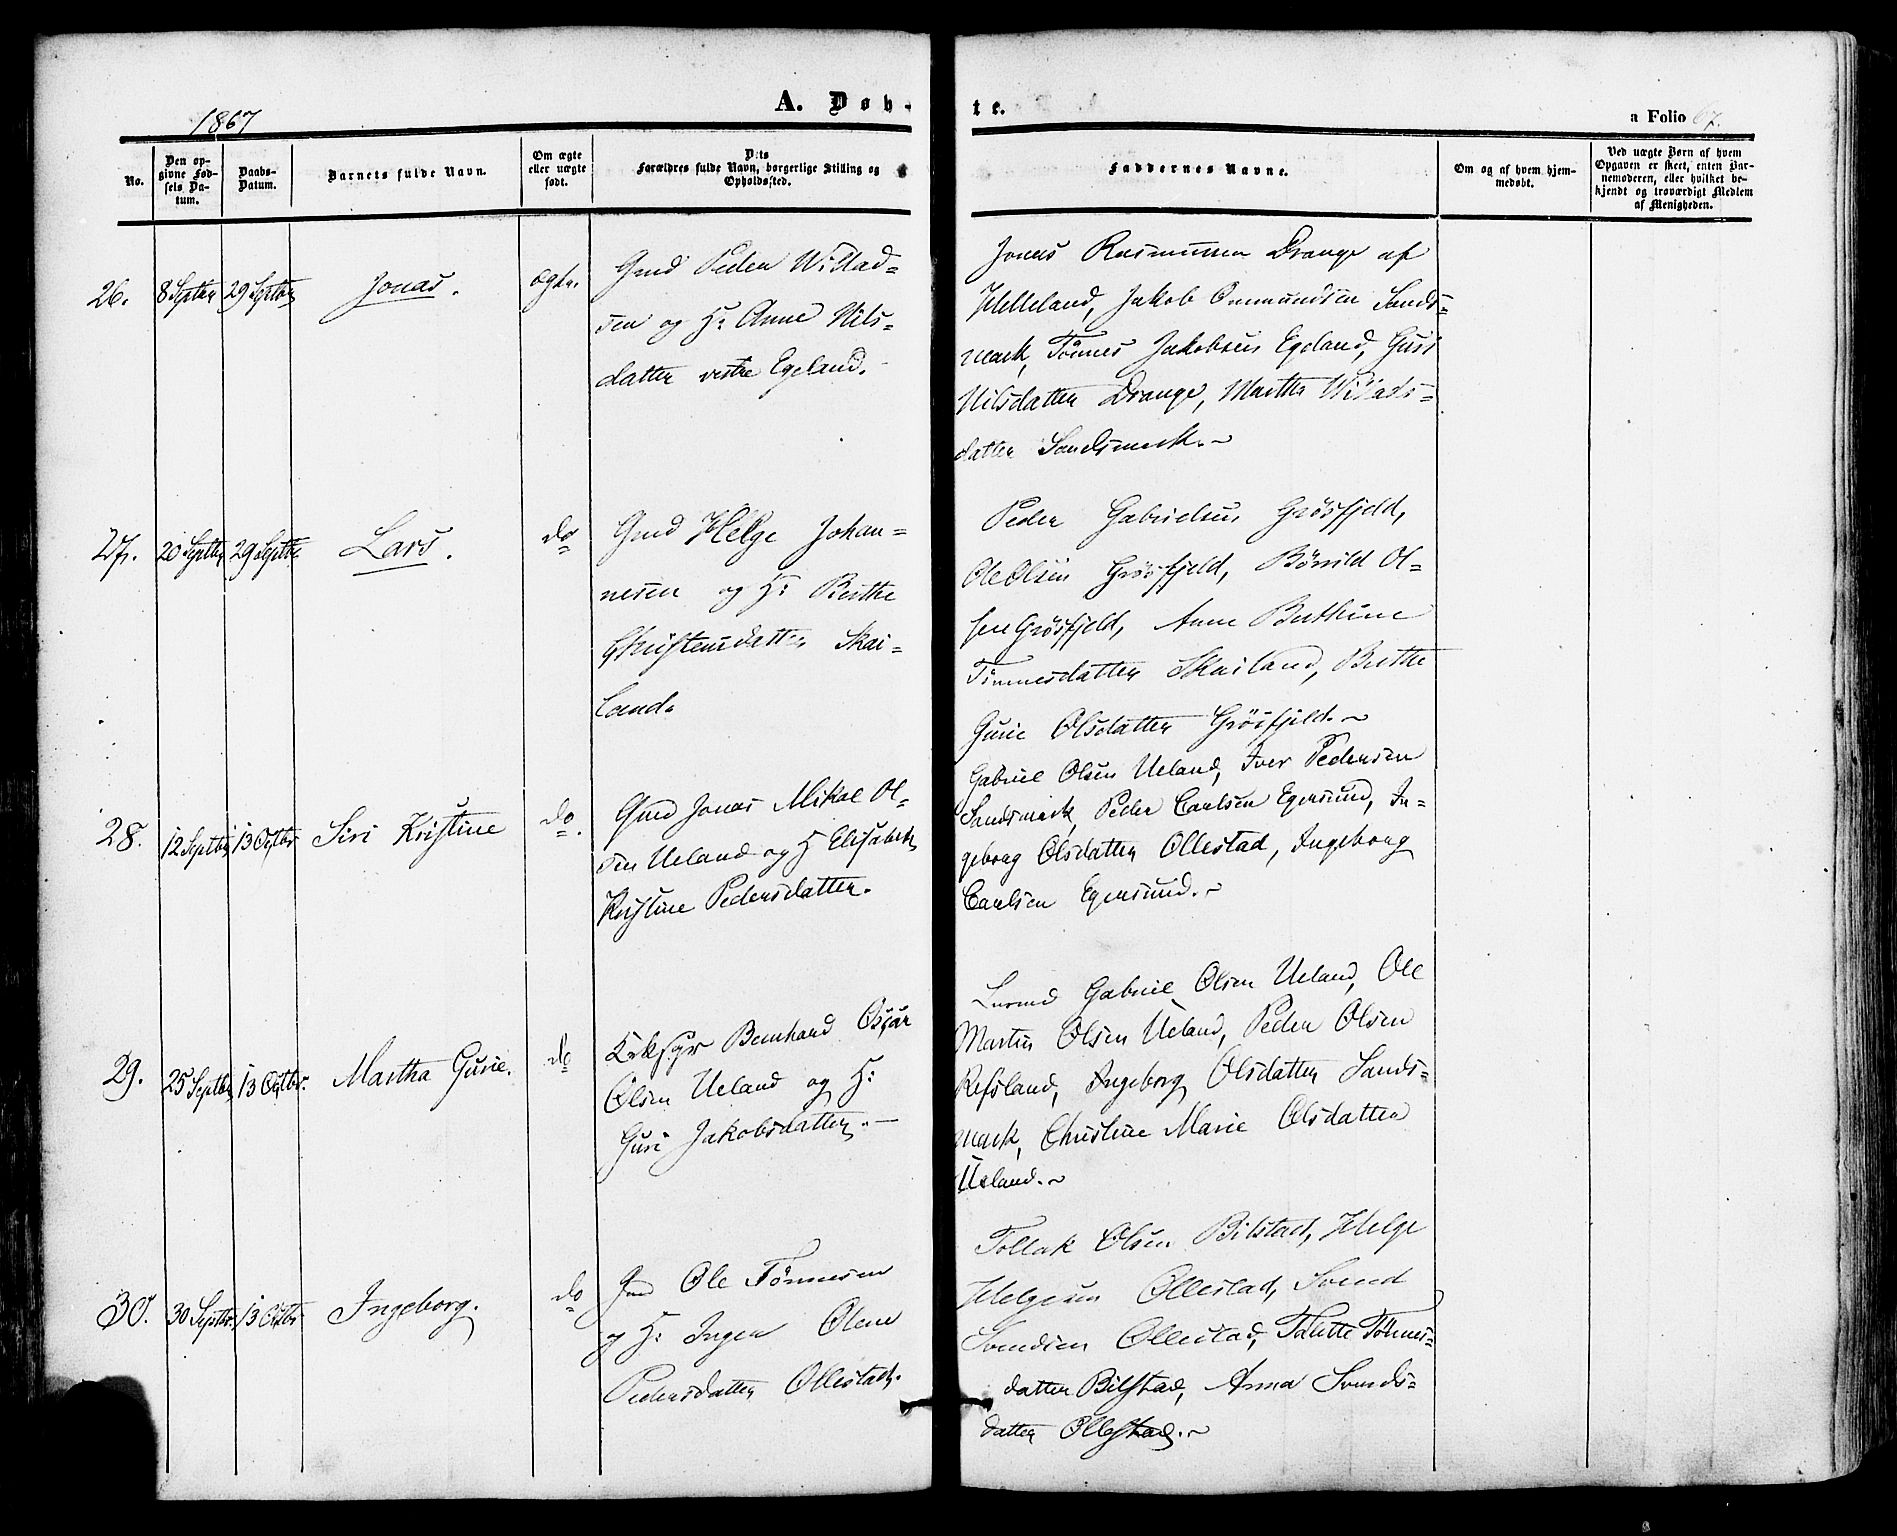 1867
A. Døb-
te.
a Folio 67.
No.
Den op-
givne Fød-
sels Da-
tum.
Daabs-
Datum.
Barnets fulde Navn.
Om ægte
eller uægte
født.
Dets
Forældres fulde Navn, borgerlige Stilling og
Opholdssted.
Faddernes Navne.
Om og af hvem hjem-
medøbt.
Ved uægte Børn af hvem
Opgaven er skeet, enten Bar-
nemoderen, eller hvilket be-
kjendt og troværdigt Medlem
af Menigheden.
26. 8 Septbr 29 Septbr Jonas. ægte.
Gmd Peder Willad-
sen og H: Anne Nils-
datter vestre Egeland.
Jonas Rasmussen Drange af
Helleland, Jakob Ommundsen Sands-
mark, Tönnes Jakobsen Egeland, Guri
Nilsdatter Drange, Martha Willads-
datter Sandsmark.~
27. 20 Septbr 29 Septbr Lars. do
Gmd Helge Johan-
nesen og H: Berthe
Christensdatter Skai-
land.
Peder Gabrielsen Grösfjeld,
Ole Olsen Grösfjeld, Bönild Ol-
sen Grösfjeld, Anne Berthine
Tönnesdatter Skailand, Berthe
Gurie Olsdatter Grösfjeld.~
28. 12 Septbr 13 Octbr Siri Kristine do.
Gmd Jonas Mikal Ol-
sen Ueland og H Elisabeth
Kristine Pedersdatter.
Gabriel Olsen Ueland, Iver Pedersen
Sandsmark, Peder Carlsen Egersund, In-
geborg Olsdatter Ollestad, Ingeborg
Carlsen Egersund.~
29. 25 Septbr 13 Octbr. Martha Gurie. do
Kirksgr Bernhard Oscar
Olsen Ueland og H:
Guri Jakobsdatter.
Lensmd Gabriel Olsen Ueland, Ole
Martin Olsen Ueland, Peder Olsen
Refsland, Ingeborg Olsdatter Sands-
mark, Christine Marie Olsdatter
Ueland.~
30. 30 Septbr. 13 Octbr Ingeborg. do
Gmd Ole Tönnesen
og H: Inger Olene
Pedersdatter Ollestad.
Tollak Olsen Bilstad, Helge
Helgesen Ollestad, Svend
Svendsen Ollestad, Talette Tönnes-
datter Bilstad, Anna Svends-
datter Ollestad.~